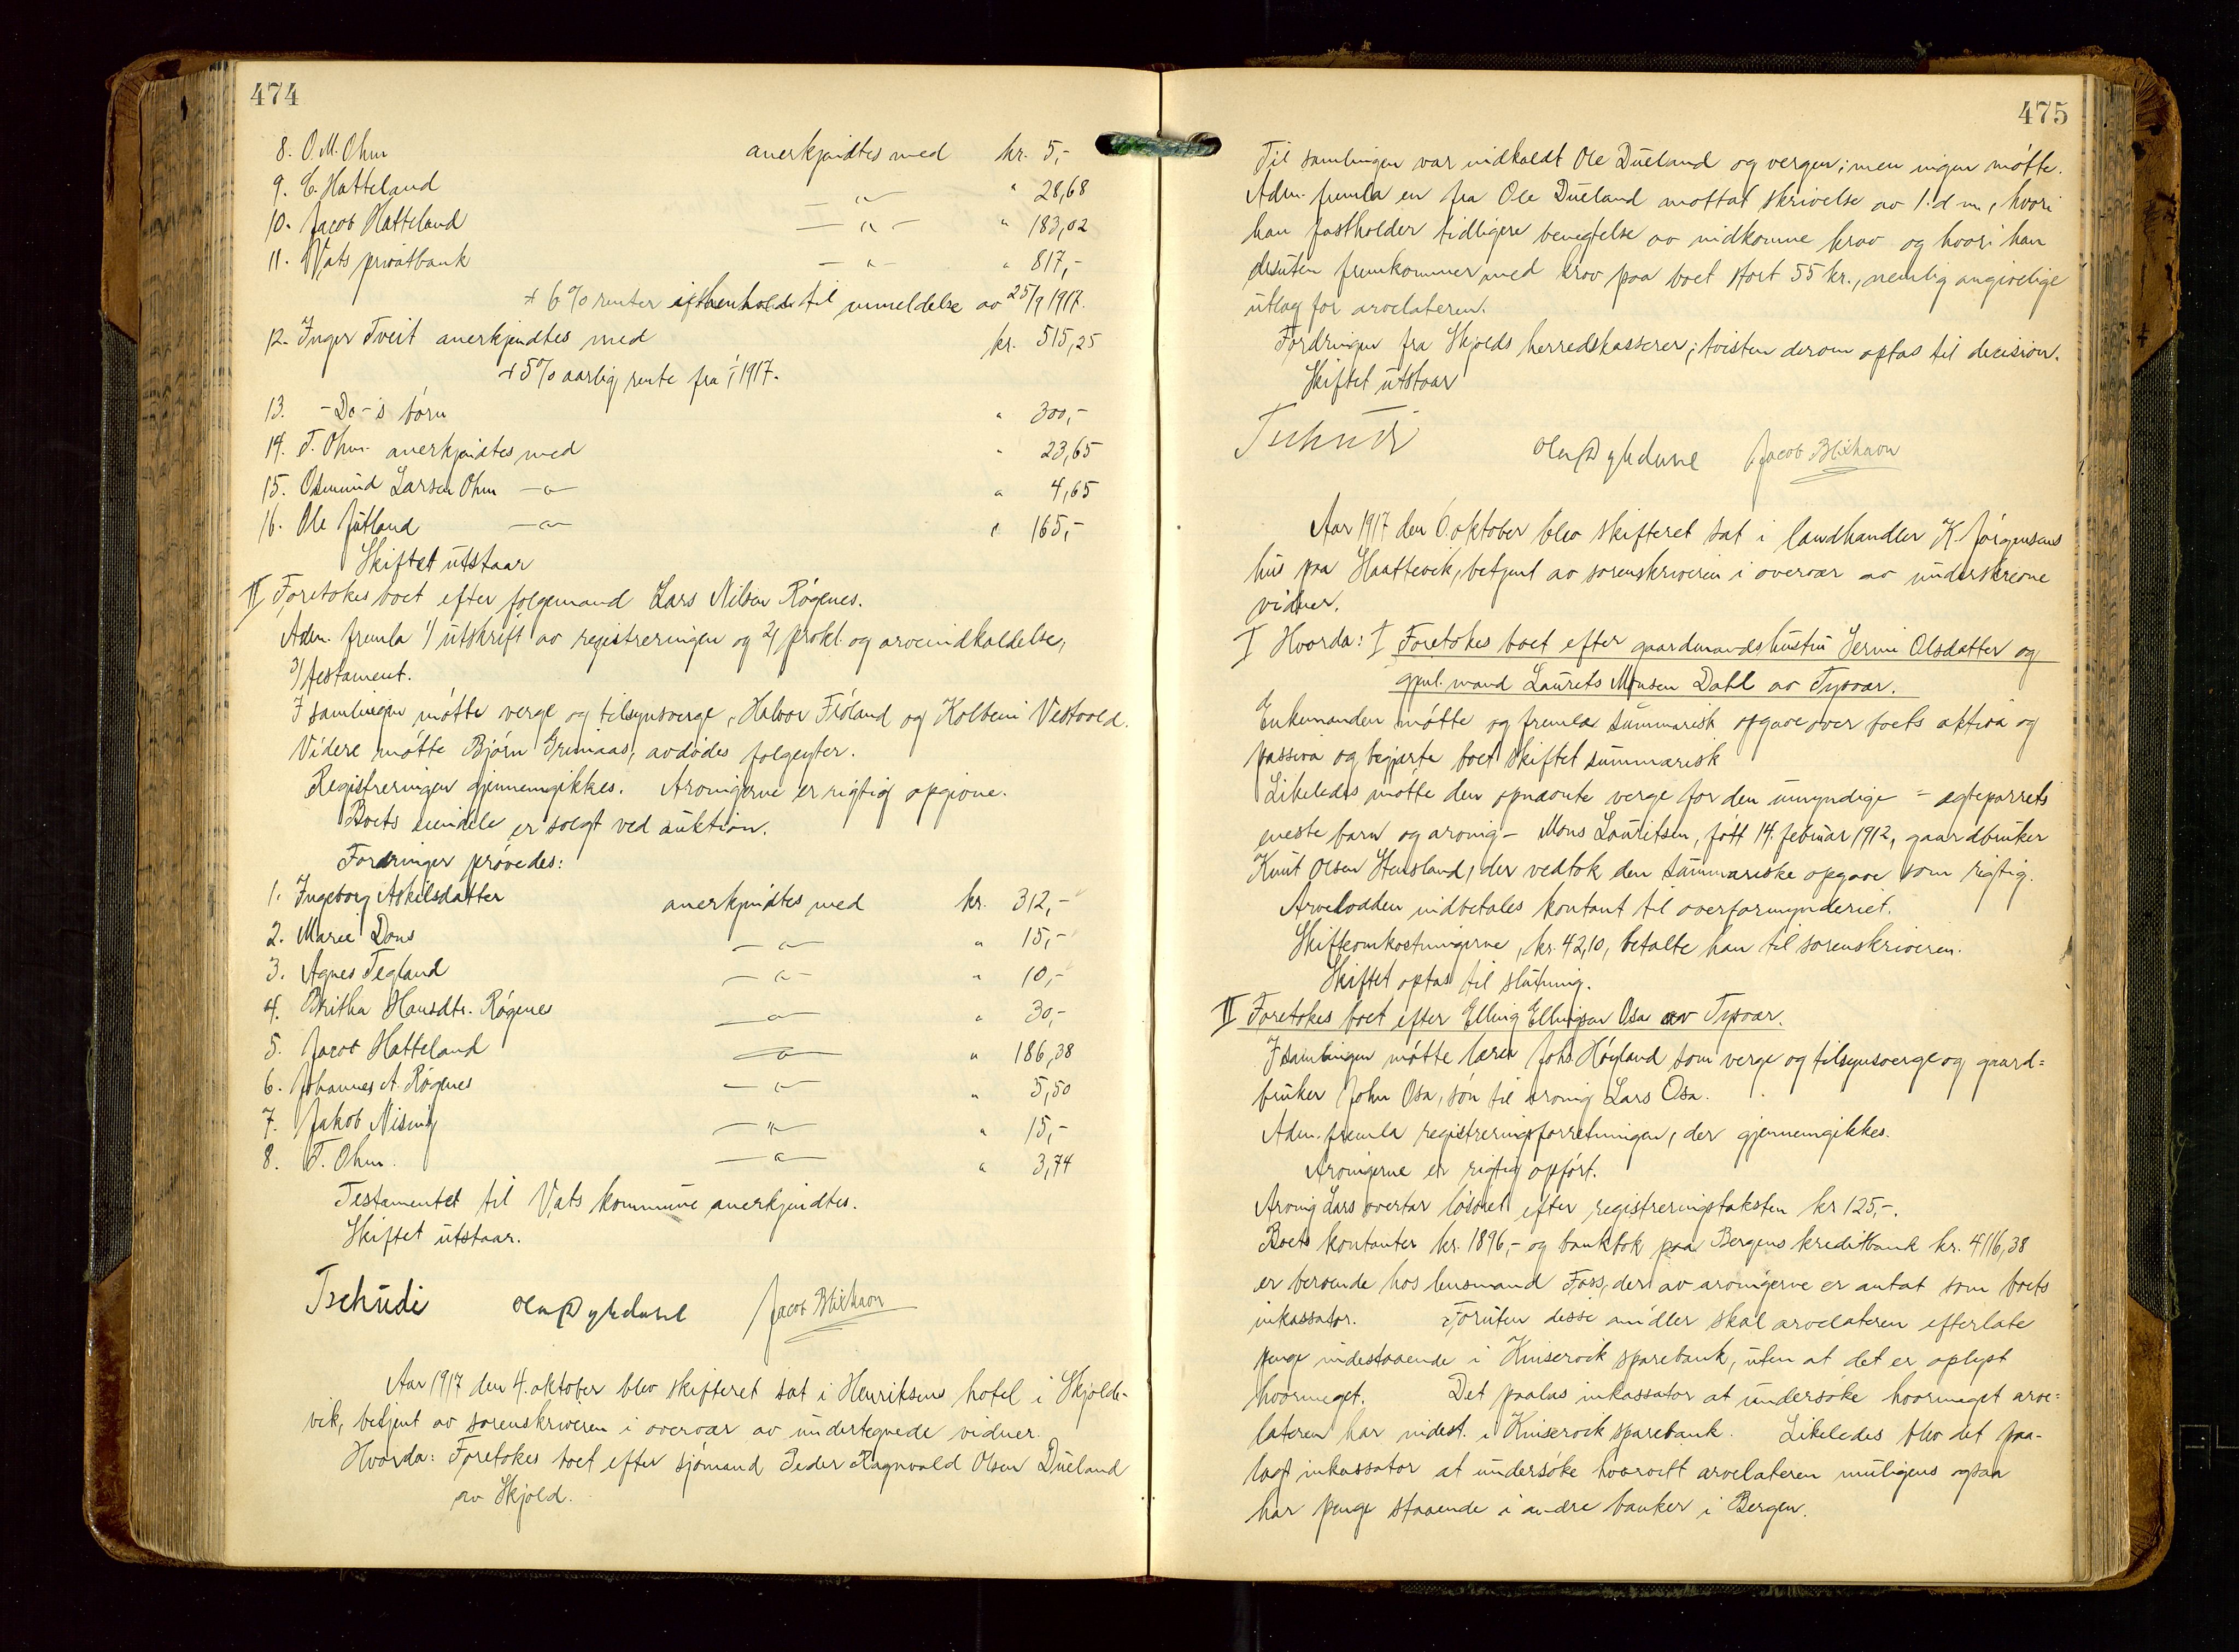 474
8. O. M. Ohm anerkjendtes med kr. 5,-
9. C. Hatteland — " — " 28,68
10. Jacob Hatteland — " — " 183,02
11. Vats privatbank — " — " 817,-
+ 6% renter til anmeldelse av 25/9 1917.
12. Inger Tveit anerkjendtes med kr. 515,25
+ 5% aarlig rente fra 1/1 1917.
13. -Do-s børn " 300,-
14. T. Ohm anerkjendtes med " 23,65
15. Osmund Larsen Ohm — " — " 4,65
16. Ole Jutland — " — " 165,-
Skiftet utstaar
II Foretokes boet efter følgemand Lars Nilsen Røgenes.
Adm. fremla 1/ utskrift av registreringen og 2/ prokl. og arveindkaldelse,
3/ testament.
I samlingen møtte verge og tilsynsverge, Halvor Fløland og Kolbein Vestvold.
Videre møtte Bjørn Grimaas, avdødes følgeyter.
Registreringen gjennemgikkes. Arvingerne er rigtig opgivne.
Boets eiendele er solgt ved auktion.
Fordringer prøvedes:
1. Ingeborg Askilsdatter anerkjendtes med kr. 312,-
2. Marie Dons — " — " 15,-
3. Agnes Tegland — " — " 10,-
4. Britha Hansdtr. Røgenes — " — " 30,-
5. Jacob Hatteland — " — " 186,38
6. Johannes A. Røgenes — " — " 5,50
7. Jakob — " — " 15,-
8. T. Ohm. — " — " 3,74
Testamentet til Vats kommune anerkjendtes.
Skiftet utstaar.
Tschudi Jacob Blikhavn
Aar 1917 den 4. oktober blev skifteret sat i Henriksens hotel i Skjolde-
vik, betjent av sorenskriveren i overvær av undertegnede vidner.
Hvorda: Foretokes boet efter sjømand Peder Ragnvald Olsen Dueland
av Skjold.
475
Til samlingen var indkaldt Ole Dueland og vergen; men ingen møtte.
Adm. fremla en fra Ole Dueland mottat skrivelse av 1. d. m., hvori
han fastholder tidligere benegtelse av indkomne krav og hvori han
desuten fremkommer med krav paa boet stort 55 kr., nemlig angivelige
utlæg for arvelateren.
Fordringen fra Skjolds herredskasserer; tvisten derom optas til decision.
Skiftet utstaar
Tschudi Jacob Blikhavn
Aar 1917 den 6. oktober blev skifteret sat i landhandler K. Jørgensens
hus paa Haattevik, betjent av sorenskriveren i overvær av underskrevne
vidner.
I Hvorda: I Foretokes boet efter gaardmandshustru Serine Olsdatter og
gjenl. mand Laurets Monsen Dahl av Tysvær.
Enkemanden møtte og fremla summarisk opgave over boets aktiva og
passiva og begjærte boet skiftet summarisk
Likeledes møtte den opnævnte verge for den umyndige - egteparrets
eneste barn og arving - Mons Lauritsen, født 14. februar 1912, gaardbruker
Knut Olsen Stensland, der vedtok den summariske opgave som rigtig.
Arvelodden indbetales kontant til overformynderiet.
Skifteomkostningerne, kr. 42,10, betalte han til sorenskriveren.
Skiftet optas til slutning.
II Foretokes boet efter Elling Ellingsen Osa av Tysvær.
I samlingen møtte lærer Johs Høyland som verge og tilsynsverge og gaard=
bruker John Osa, søn til arving Lars Osa.
Adm. fremla registreringsforretningen, der gjennemgikkes.
Arvingerne er rigtig opført.
Arving Lars overtar løsøret efter registreringstaksten kr 125,-.
Boets kontanter kr. 1896,- og bankbok paa Bergens kreditbank kr. 4116,38
er beroende hos lensmand Foss, der av arvingerne er antat som boets
inkassator. Foruten disse midler skal arvelateren efterlate
penge indestaaende i Kinservik sparebank, uten at det er oplyst
hvormeget. Det paalas inkassator at undersøke hvormeget arve=
lateren har indest. i Kinservik sparebank. Likeledes blev det paa-
lagt inkassator at undersøke hvorvitt arvelateren muligens ogsaa
har penge staaende i andre banker i Bergen.